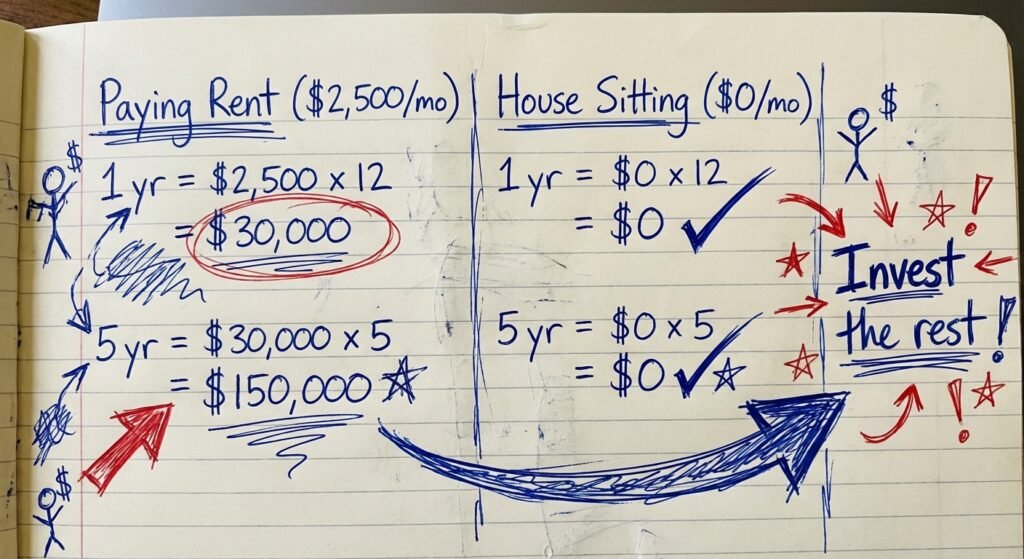 Paying Rent ($2,500/mo)
1 yr = $2,500 x 12
= $30,000
5 yr = $30,000 x 5
= $150,000
House Sitting ($0/mo)
1 yr = $0 x 12
= $0
5 yr = $0 x 5
= $0
$
$
$
Invest
the rest!
!
!